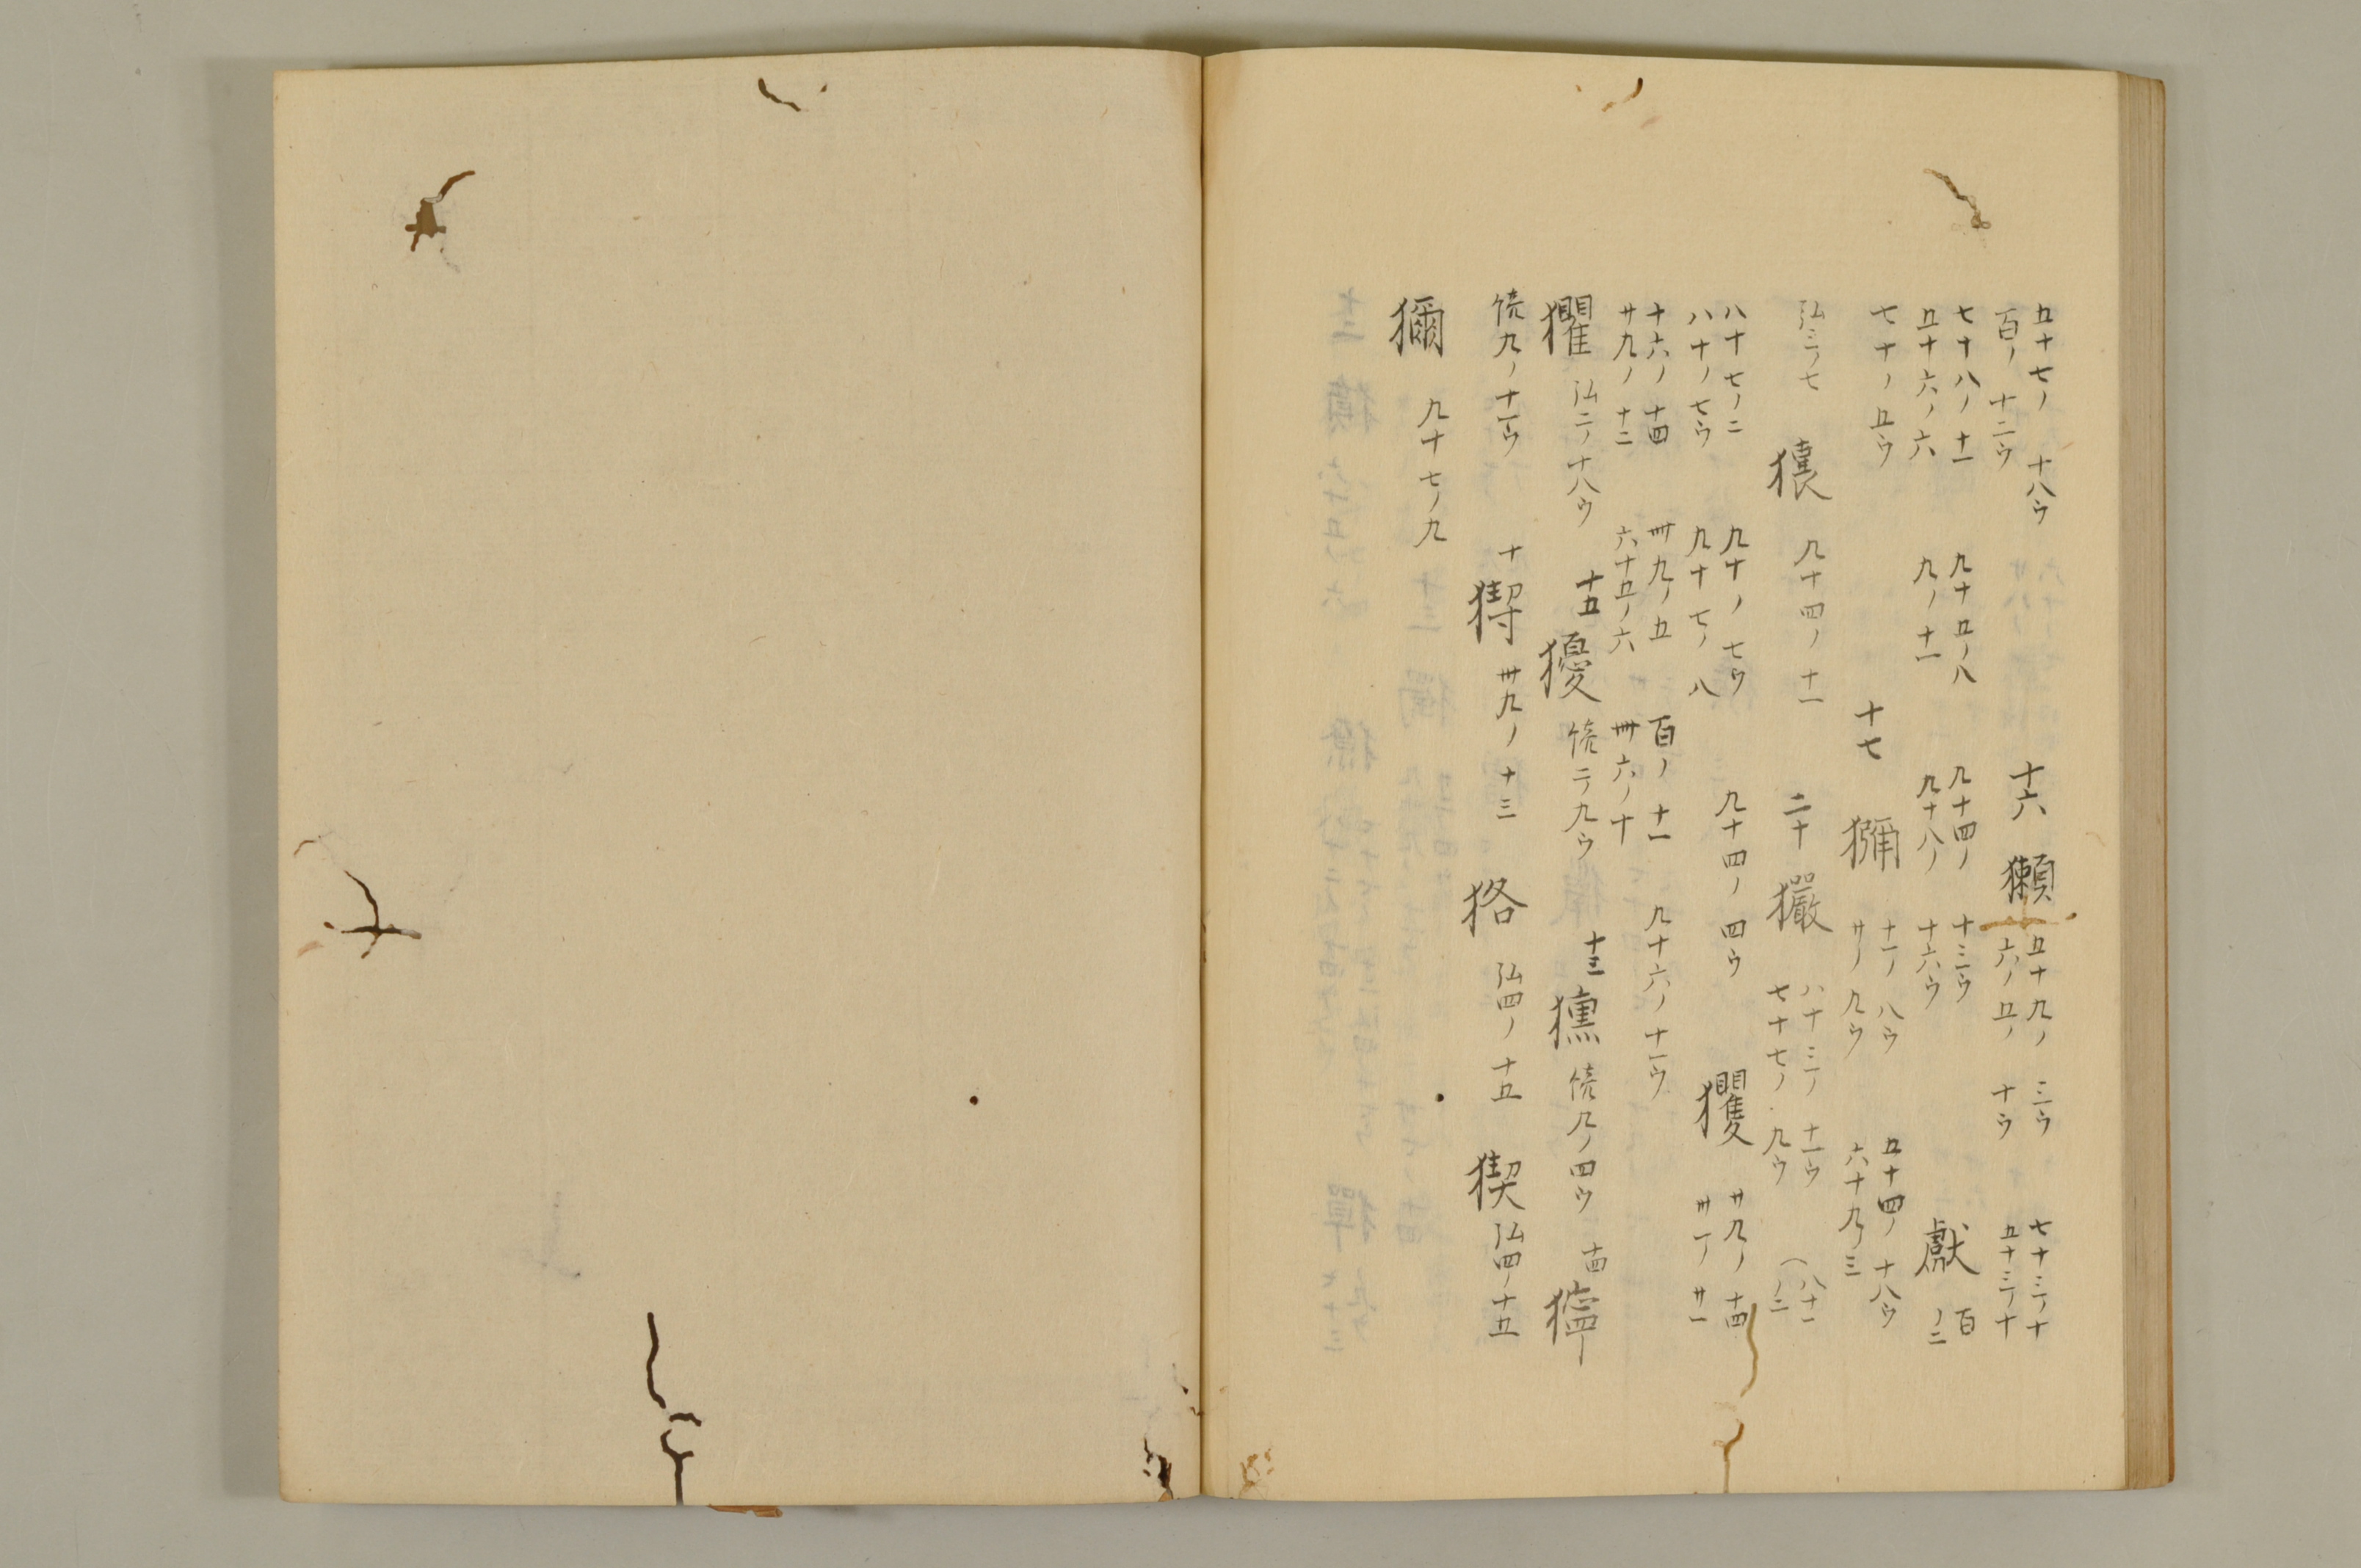 五十七ノ 十八ウ 十六 獺 五十九ノ 三ウ 七十三ノ十
百ノ 十二ウ 六ノ五ノ 十ウ 五十三ノ十
七十八ノ十一 九十五ノ八 九十四ノ 十三ウ 獻 百ノ二
五十六ノ六 九ノ十一 九十八ノ 十六ウ
七十ノ五ウ 十七 獼 十一ノ 八ウ 五十四ノ 十八ウ
廿ノ 九ウ 六十九ノ三
弘三ノ七 九十四ノ十一 二十 玁 八十三ノ 十一ウ
七十七ノ 九ウ
八十七ノ二 九十ノ 七ウ 九十四ノ 四ウ 玃 廿九ノ 十四
八十ノ七ウ 九十七ノ八 卅一ノ 廿一
十六ノ十四 卅九ノ五 百ノ十一 九十六ノ十一ウ
廿九ノ十二 六十五ノ六 卅六ノ十
弘二ノ十八ウ 十五 獶 二ノ九ウ 十三 獯 九ノ四ウ 十四 獰
九ノ十一ウ 十 卅九ノ十三 狢 弘四ノ十五 猰 弘四ノ十五
獮 九十七ノ九